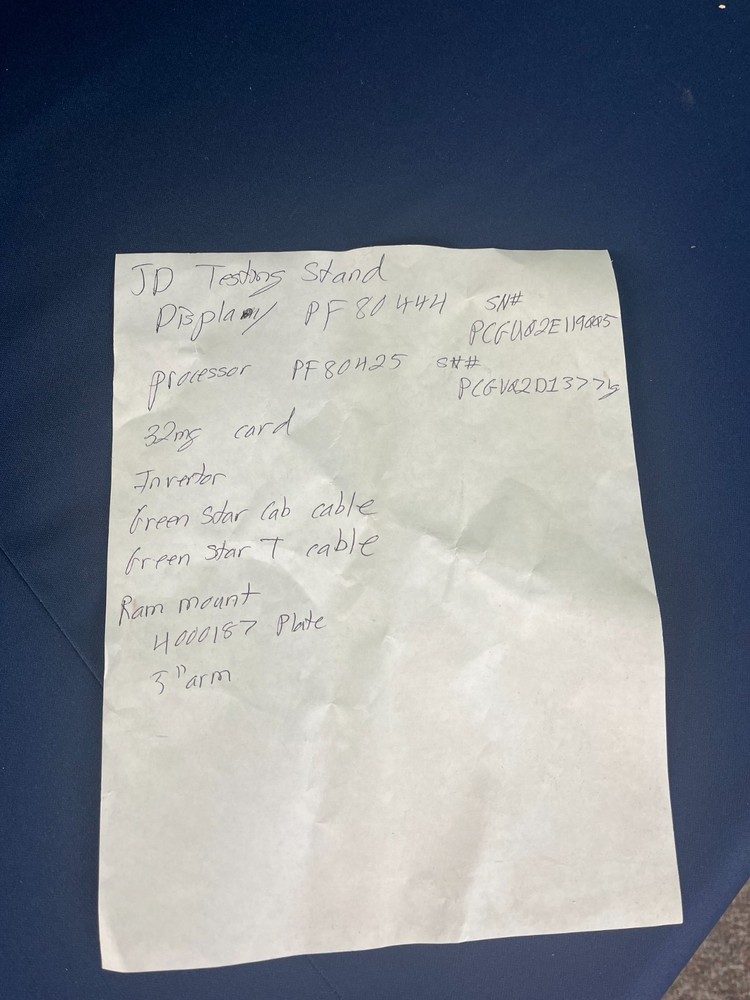 JD Testing Stand
Display PF80444 SN#
PCGU02E119005
processor PF80425 S##
PCGV02D13771
32mg card
Invertor
Green Star Cab cable
Green Star T cable
Ram mount
4000187 Plate
3" arm